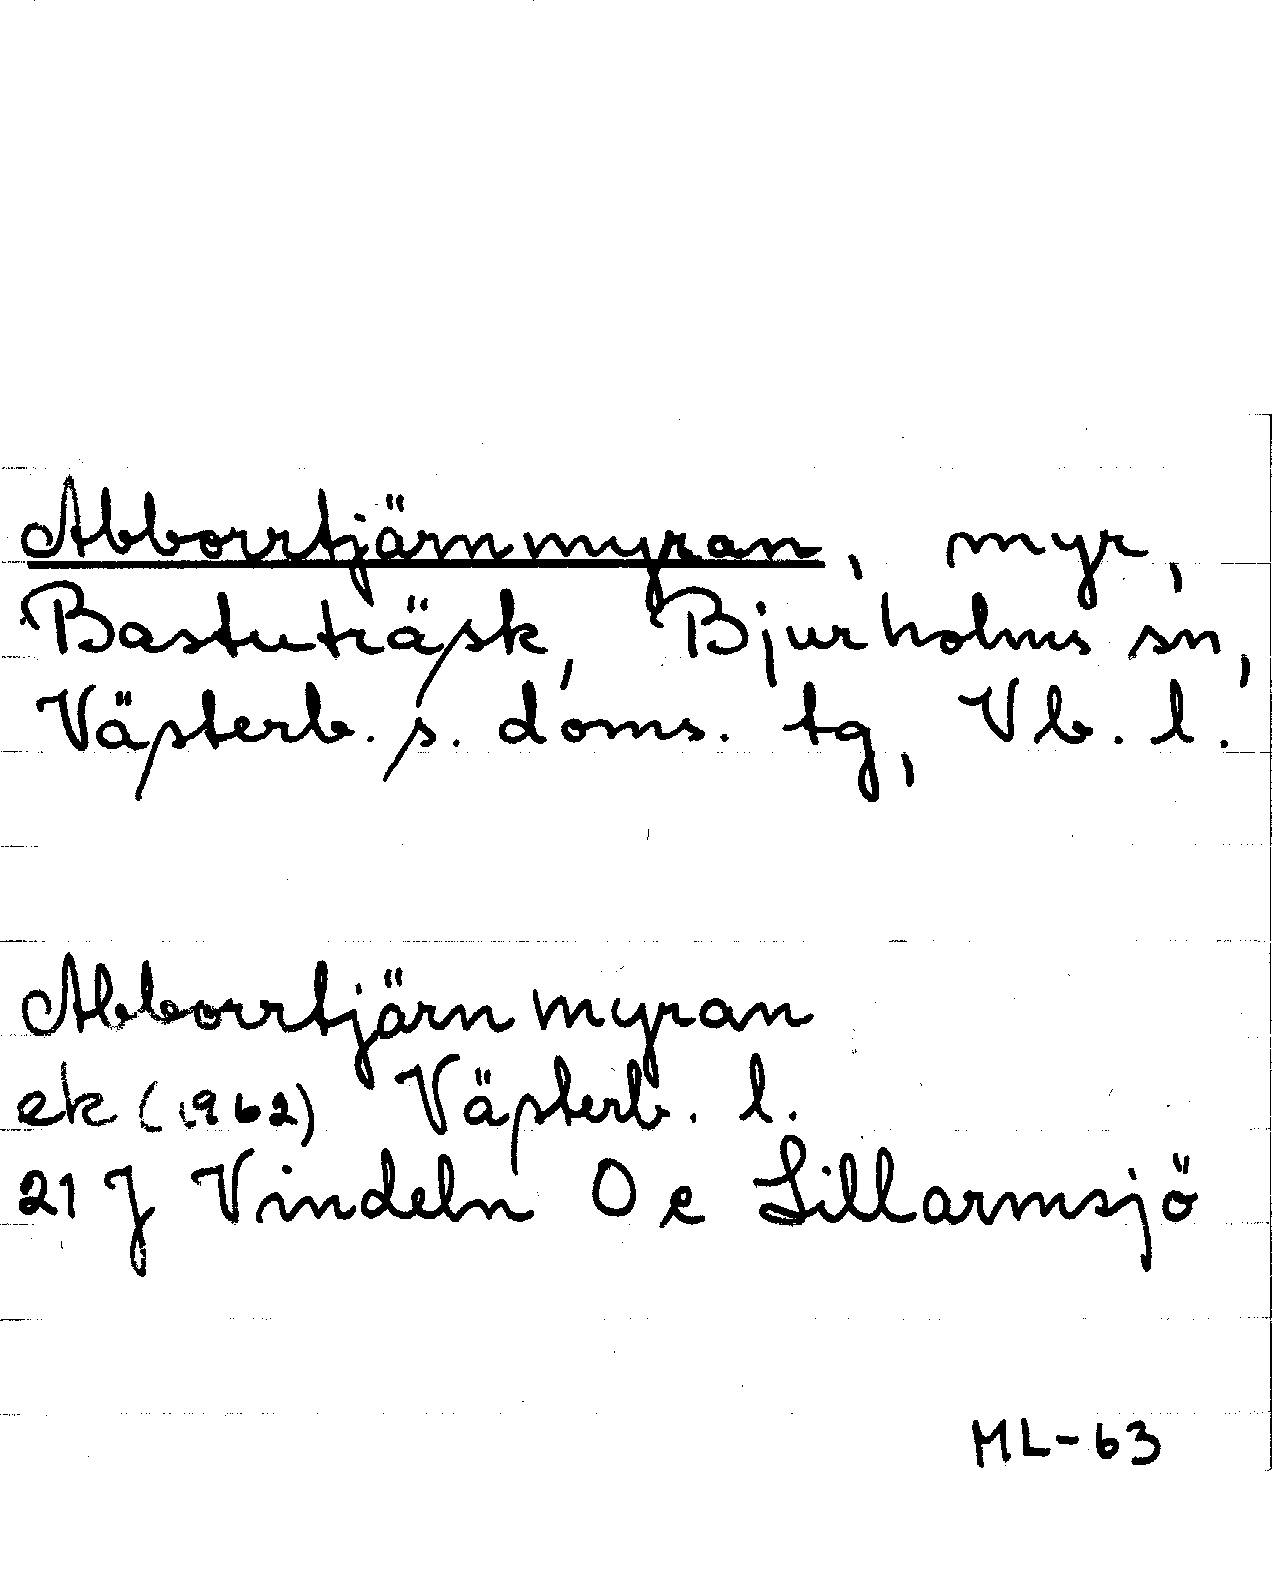 Abborrtjärnmyran, myr,
Bastuträsk, Bjurholms sn,
Västerb. s. doms. tg, Vb. l.
Abborrtjärnmyran
ek (1962) Västerb. l.
21 J Vindeln 0 e Lillarmsjö
ML-63